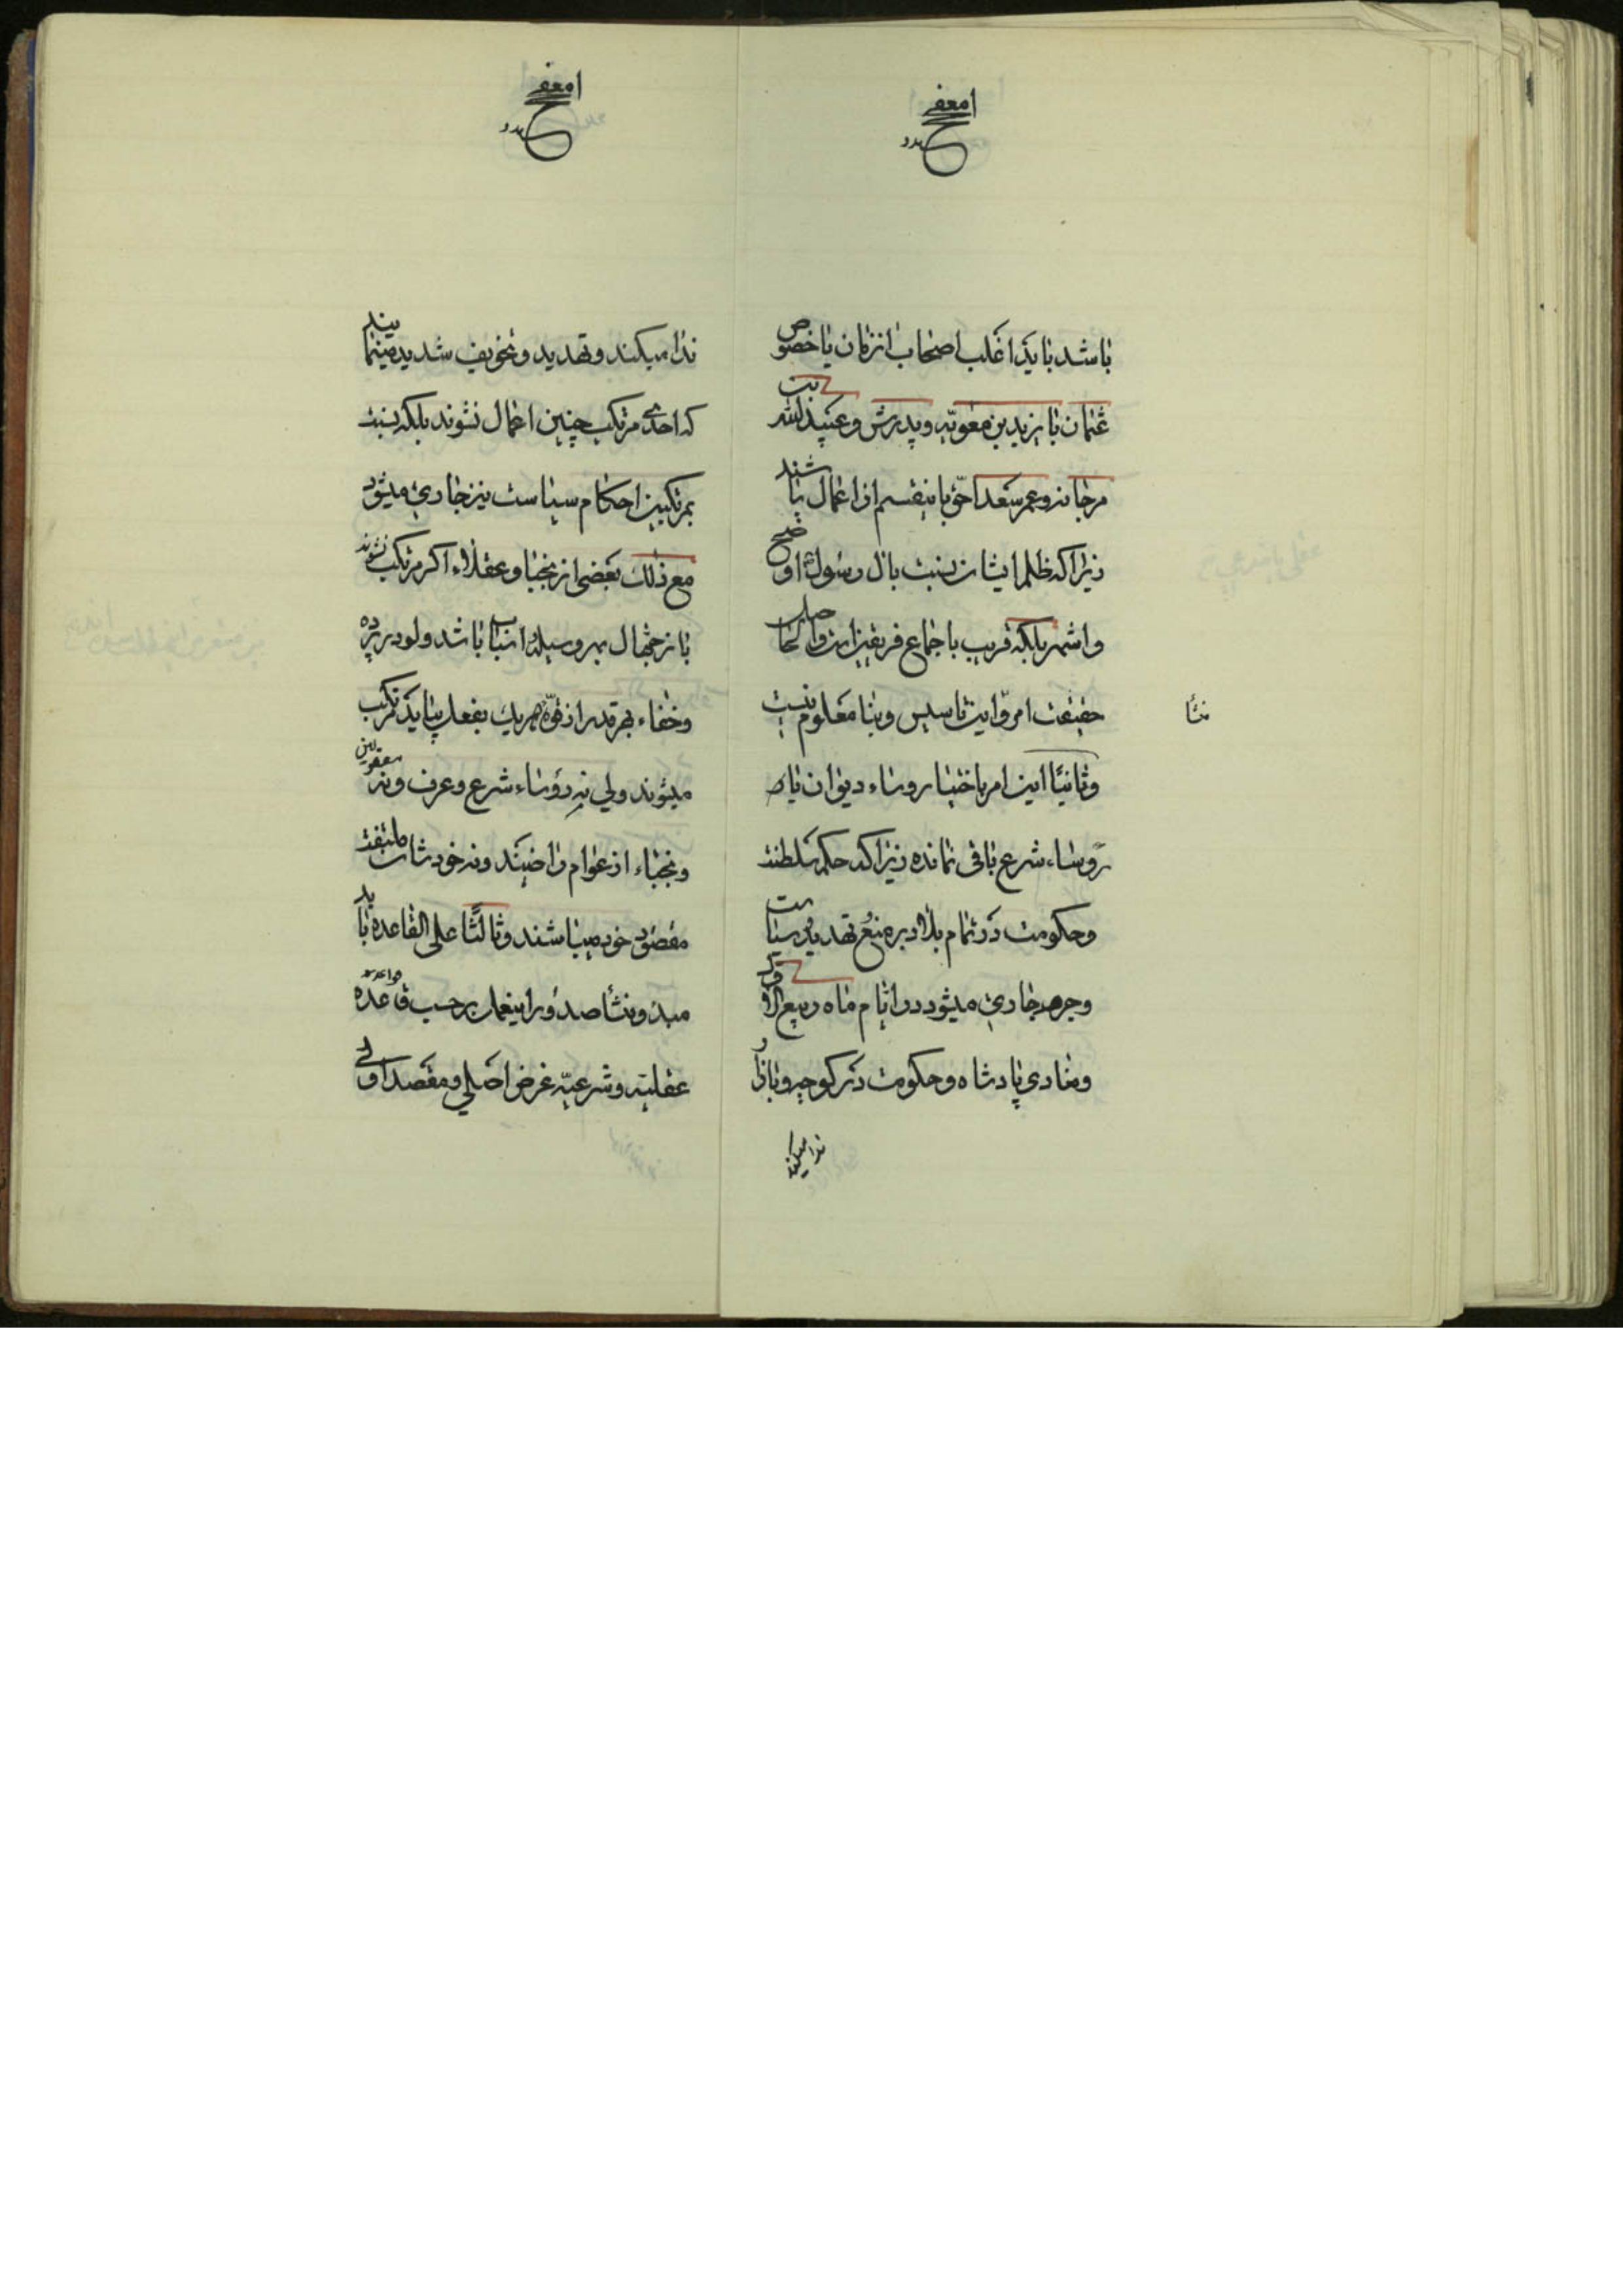 باشد باید اغلب اصحاب انزمان یا خصوص
عثمان یا یزید بن معویه و پدرش و عبیدالله بن
مرجانه و عمر سعد احق باینقسم از اعمال باشند
زیرا که ظلم ایشان نسبت بال رسول اوضح
و اشهر بلکه قریب باجماع فریقین است و
حقیقت امر و این تاسیس و بنا معلوم نیست
منشأ
و ثانیًا این امر باختیار روساء دیوان یا
روساء شرع باقی نمانده زیرا که حکم سلطنت
و حکومت در تمام بلاد بر منع و تهدید و سیاست
و جرم جاری میشود در ایام ماه ربیع الاول
و منادی پادشاه و حکومت در کوچه و بازار
ندا میکند
ندا میکند و تهدید و تخویف شدید مینماید
که احدی مرتکب چنین اعمال نشوند بلکه نسبت
بمرتکبین احکام سیاست نیز جاری میشود
مع ذلک بعضی از نجبا و عقلاء اکر مرتکب نشوند
باز جهّال بهر وسیله و اسباب باشد ولو در پرده
و خفاء بهر قدر از قوّه هر یک بفعل بیاید مرتکب
میشوند ولی نه رؤساء شرع و عرف و نه
و نجباء از عوام راضیند و نه خودشان ملتفت
مقصود خود میباشند و ثالثًا علی القاعده باید
مبدء و منشأ صدور اینعمل بر حسب قاعده
عقلیّه و شرعیّه غرض اصلی و مقصد اولی